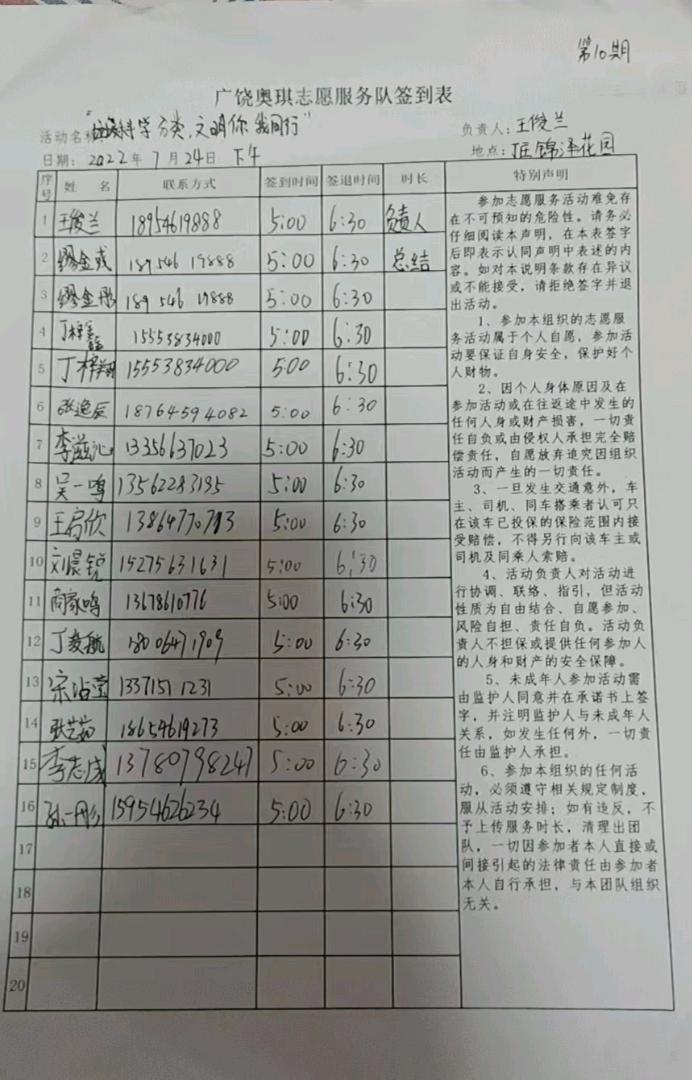 第10期
广饶奥琪志愿服务队签到表
活动名称:"垃圾科学分类、文明你我同行" 负责人:王俊兰
日期:2022年7月24日下午 地点:锦泽花园
序号 姓名 联系方式 签到时间 签退时间 时长 特别声明
1 王俊兰 18954619888 5:00 6:30 负责人
2 缪金成 18954619888 5:00 6:30 总结
3 缪金彤 18954619888 5:00 6:30
4 丁梓 15553834000 5:00 6:30
5 丁梓翔 15553834000 5:00 6:30
6 张逸辰 18764594082 5:00 6:30
7 李滋沁 13356637023 5:00 6:30
8 吴一鸣 13562283195 5:00 6:30
9 王启欣 13864770713 5:00 6:30
10 刘晨锐 15275631631 5:00 6:30
11 商家鸣 13678610776 5:00 6:30
12 丁毅航 18006471909 5:00 6:30
13 宗洁莹 13371511231 5:00 6:30
14 张艺茹 18654619273 5:00 6:30
15 李志成 13780798247 5:00 6:30
16 孙一彤 15954626234 5:00 6:30
17
18
19
20
参加志愿服务活动难免存
在不可预知的危险性。请务必
仔细阅读本声明,在本表签字
后即表示认同声明中表述的内
容。如对本说明条款存在异议
或不能接受,请拒绝签字并退
出活动。
1、参加本组织的志愿服
务活动属于个人自愿,参加活
动要保证自身安全,保护好个
人财物。
2、因个人身体原因及在
参加活动或在往返途中发生的
任何人身或财产损害,一切责
任自负或由侵权人承担完全赔
偿责任,自愿放弃追究因组织
活动而产生的一切责任。
3、一旦发生交通意外,车
主、司机、同车搭乘者认可只
在该车已投保的保险范围内接
受赔偿,不得另行向该车主或
司机及同乘人索赔。
4、活动负责人对活动进
行协调、联络、指引,但活动
性质为自由结合、自愿参加、
风险自担、责任自负。活动负
责人不担保或提供任何参加人
的人身和财产的安全保障。
5、未成年人参加活动需
由监护人同意并在承诺书上签
字,并注明监护人与未成年人
关系,如发生任何外,一切责
任由监护人承担。
6、参加本组织的任何活
动,必须遵守相关规定制度,
服从活动安排;如有违反,不
予上传服务时长,清理出团
队,一切因参加者本人直接或
间接引起的法律责任由参加者
本人自行承担,与本团队组织
无关。